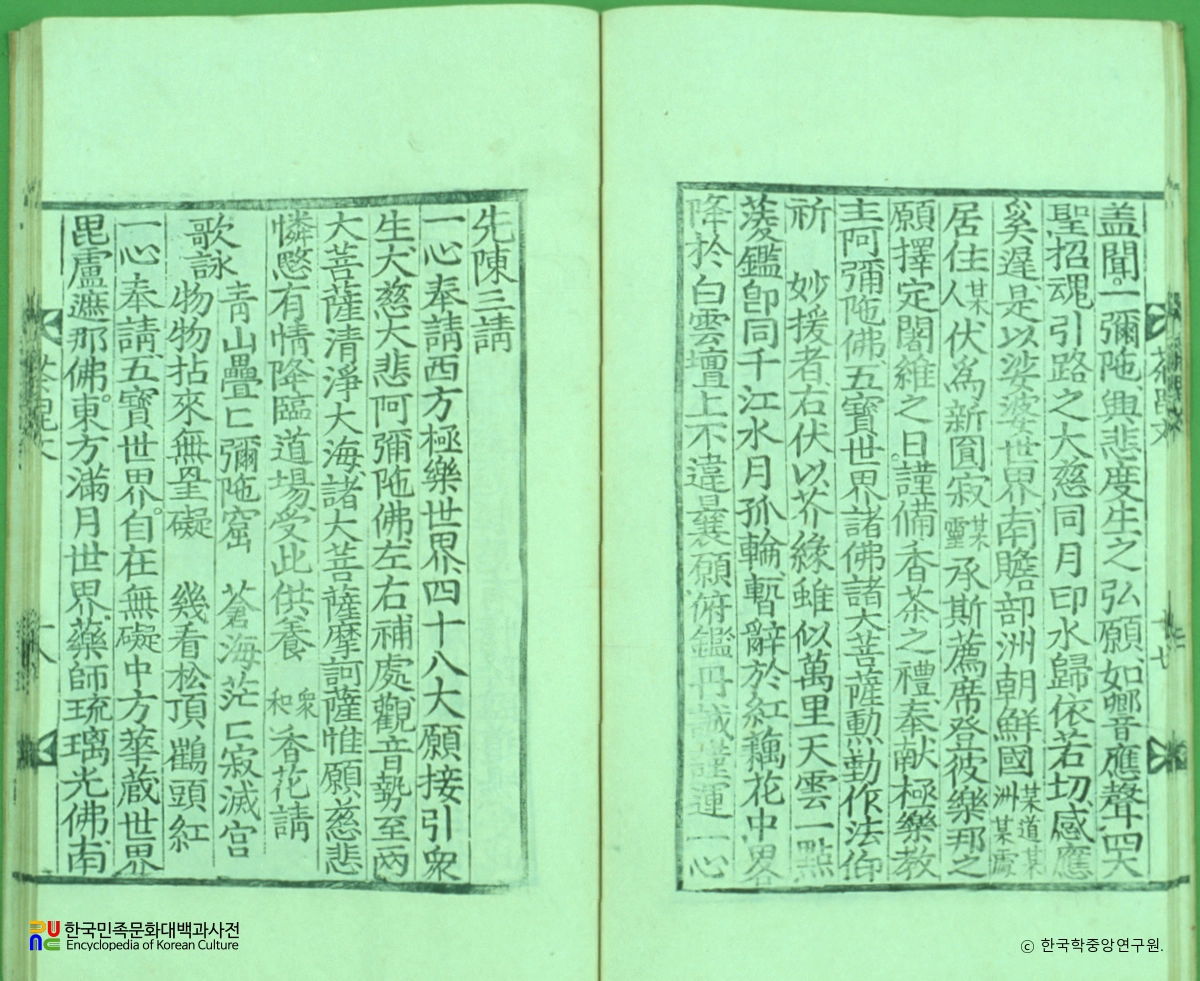 盖聞一彌陁興悲度生之弘願如嚮音應聲四大
聖招魂引路之大慈同月印水歸依若切感應
奚遲是以娑婆世界南贍部洲朝鮮國某道某洲某處
居住人某伏爲新圓寂某靈承斯薦席登彼樂邦之
願擇定闍維之日謹備香茶之禮奉献極樂教
主阿彌陁佛五寶世界諸佛諸大菩薩勲動作法伸
祈 妙援者右伏以芥緣雖似萬里天雲一點
菱鑑卽同千江水月孤輪暫辭於紅藕花中畧
降於白雲壇上不違曩願俯鑑丹誠謹運一心
先陳三請
一心奉請西方極樂世界四十八大願接引衆
生大慈大悲阿彌陁佛左右補處觀音勢至兩
大菩薩清淨大海諸大菩薩摩訶薩惟願慈悲
憐愍有情降臨道場受此供養 衆和 香花請
歌詠 靑山疊〻彌陁窟 蒼海茫〻寂滅宮
物物拈來無罣礙 幾看松頂鶴頭紅
一心奉請五寶世界自在無礙中方華藏世界
毘盧遮那佛東方滿月世界藥師琉璃光佛南
한국민족문화대백과사전
Encyclopedia of Korean Culture
© 한국학중앙연구원.